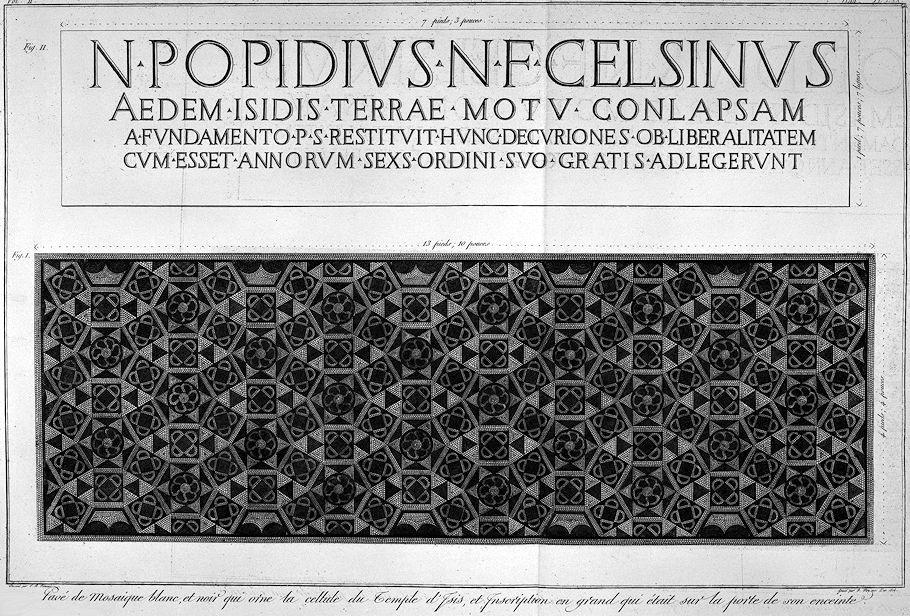 7 pieds, 3 pouces
Fig. II.
N·POPIDIVS·N·F·CELSINVS
AEDEM·ISIDIS·TERRAE·MOTV·CONLAPSAM
A·FVNDAMENTO·P·S·RESTITVIT·HVNC·DECVRIONES·OB·LIBERALITATEM
CVM·ESSET·ANNORVM·SEXS·ORDINI·SVO·GRATIS·ADLEGERVNT
1 pied, 7 pouces, 7 lignes
13 pieds, 10 pouces
Fig. I.
Pavé de Mosaique blanc, et noir qui orne la cellule du Temple d'Isis, et Inscription en grand qui était sur la porte de son enceinte.